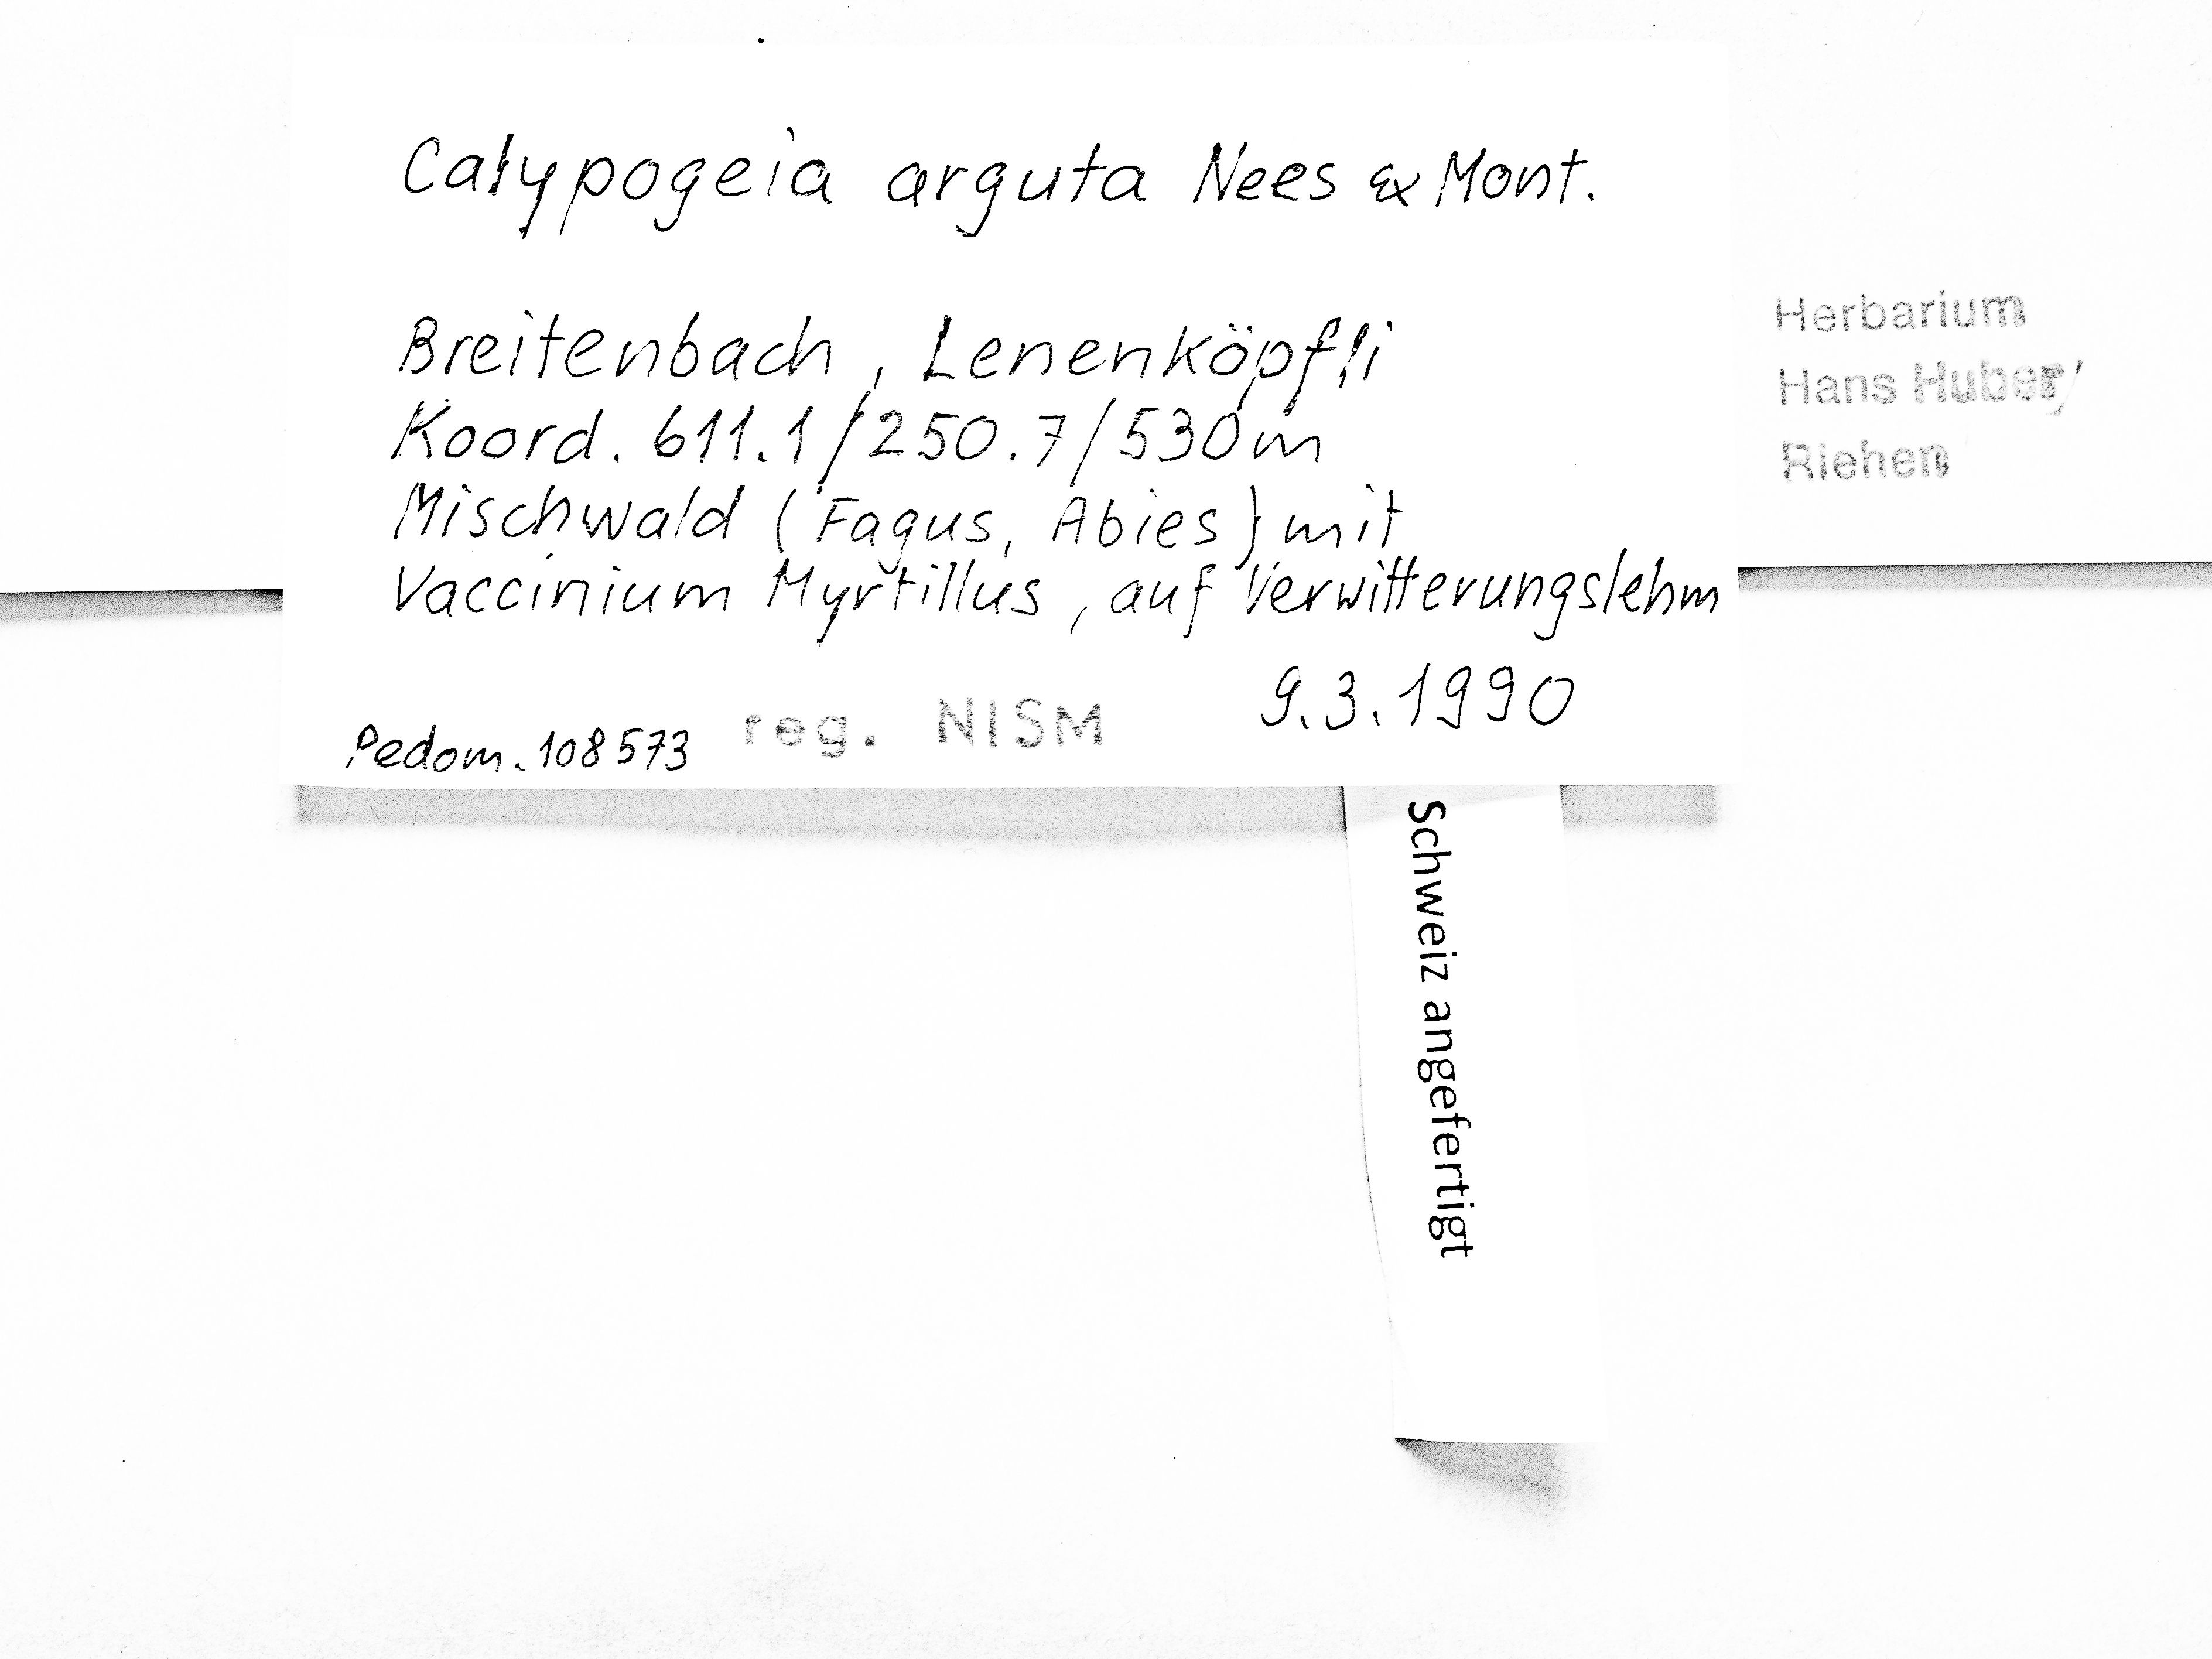 Calypogeia arguta Nees & Mont.
Breitenbach, Lenenköpfli
Koord. 611.1/250.7/530m
Mischwald (Fagus, Abies) mit
Vaccinium Myrtillus, auf Verwitterungslehm
9.3.1990
Pedom. 108573 reg. NISM
Herbarium
Hans Huber
Riehen
Schweiz angefertigt